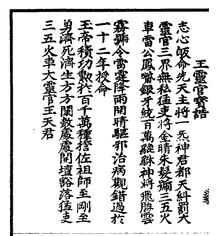 王靈官寶誥
志心皈命先天主將一炁神君都天糾罰大
靈官三界無私猛吏將金睛朱髮號三五火
車雷公鳳嘴銀牙統百萬貔貅神將飛騰雲
霧號令雷霆降雨開晴驅邪治病觀錯過於
一十二年授命
玉帝積功勳於百千萬種擔佐祖師至剛至
勇濟死濟生方方闡教處處開壇豁落猛吏
三五火車大靈官王天君